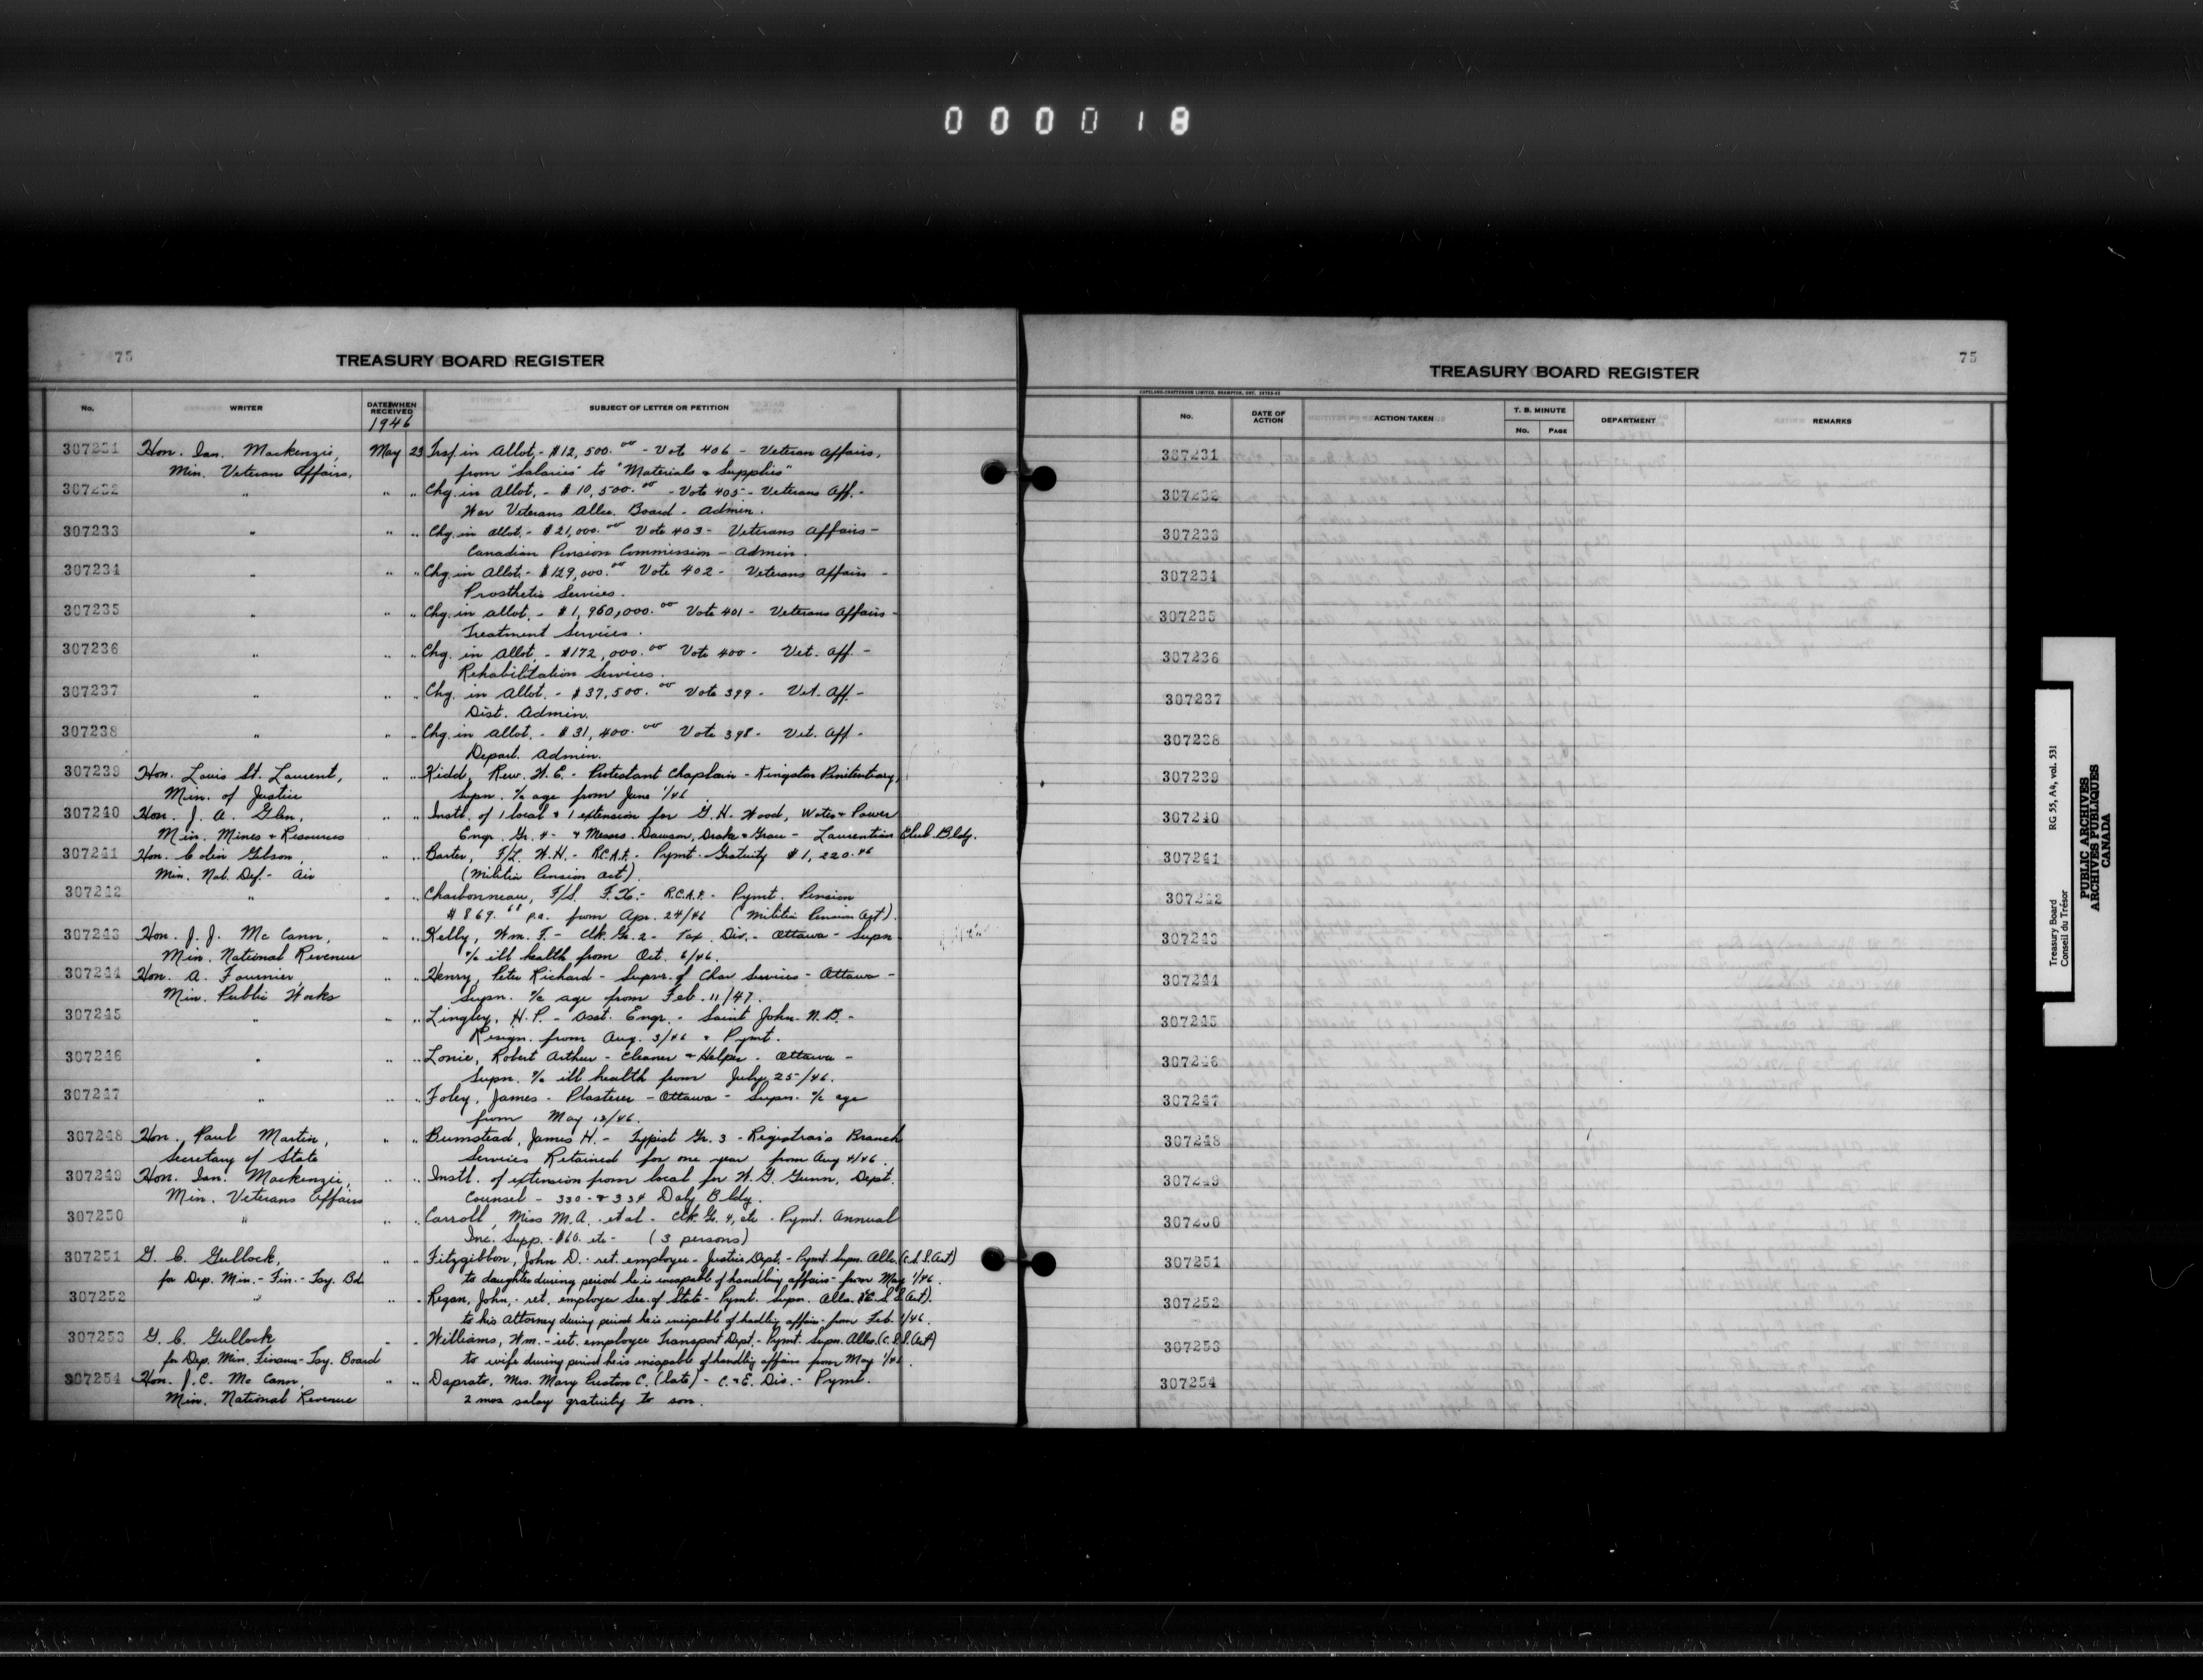 000018
75
TREASURY BOARD REGISTER
No. WRITER DATE WHEN RECEIVED SUBJECT OF LETTER OR PETITION
1946
307231 Hon. Ian. Mackenzie, May 23 Trsf. in Allot. - $12,500.00 - Vote 406 - Veteran Affairs,
Min. Veterans Affairs, from "Salaries" to "Materials & Supplies"
307232 " " " Chg. in Allot. - $10,500.00 - Vote 405 - Veterans Aff. -
War Veterans Allce. Board - Admin.
307233 " " " Chg. in allot. - $21,000.00 Vote 403 - Veterans Affairs -
Canadian Pension Commission - Admin.
307234 " " " Chg. in Allot. - $129,000.00 Vote 402 - Veterans Affairs -
Prosthetic Services.
307235 " " " Chg. in allot. - $1,960,000.00 Vote 401 - Veterans Affairs -
Treatment Services.
307236 " " " Chg. in Allot. - $172,000.00 Vote 400 - Vet. Aff. -
Rehabilitation Services.
307237 " " " Chg. in Allot. - $37,500.00 Vote 399 - Vet. Aff -
Dist. Admin.
307238 " " " Chg. in allot. - $31,400.00 Vote 398 - Vet. Aff -
Depart. Admin.
307239 Hon. Louis St. Laurent, " " Kidd, Rev. W. E. - Protestant Chaplain - Kingston Penitentiary,
Min. of Justice Supn. a/c age from June 1/46
307240 Hon. J. A. Glen, " " Instl. of 1 local & 1 extension for G. H. Wood, Water & Power
Min. Mines & Resources Engr. Gr. 4 - & Messrs. Dawson, Drake & - Laurentian Club Bldg.
307241 Hon. Colin Gibson, " " Barter, F/L. W. H. - R.C.A.F. - Pymt. Gratuity $1,220.46
Min. Nat. Def. - Air (Militia Pension Act).
307242 " " " Charbonneau, F/S. F. X. - R.C.A.F. - Pymt. Pension
$869.68 p.a. from Apr. 24/46 (Militia Pension Act).
307243 Hon. J. J. Mc Cann, " " Kelly, Wm. F. - Clk. Gr. 2 - Tax. Div. - Ottawa - Supn
Min. National Revenue a/c ill health from Oct. 6/46.
307244 Hon. A. Fournier, " " Henry, Peter Richard - Supvr. of Char Services - Ottawa -
Min. Public Works Supn. a/c age from Feb. 11/47.
307245 " " " Lingley, H. P. - Asst. Engr. - Saint John. N.B. -
Resign. from Aug. 3/46 & Pymt.
307246 " " " Lonie, Robert Arthur - Cleaner & Helper - Ottawa -
Supn. a/c ill health from July 25/46.
307247 " " " Foley, James - Plasterer - Ottawa - Supn. a/c age
from May 12/46.
307248 Hon. Paul Martin, " " Bumstead, James H. - Typist Gr. 3 - Registrar's Branch
Secretary of State Services Retained for one year from Aug 4/46.
307249 Hon. Ian. Mackenzie, " " Instl. of extension from local for W. G. Gunn, Dept.
Min. Veterans Affairs Counsel - 330 - & 334 Daly Bldg.
307250 " " " Carroll, Miss M. A. et al - Clk. Gr. 4, etc - Pymt. Annual
Inc. Supp. - $60. etc - (3 persons)
307251 G. C. Gullock, " " Fitzgibbon, John D. - ret. employee - Justice Dept. - Pymt. Supn. Allce. (C.S.S. Act)
for Dep. Min. - Fin. - Tsy. Bd. to daughter during period he is incapable of handling affairs - from May 1/46.
307252 " " " Regan, John, - ret. employee Sec. of State - Pymt. Supn. Allce. (C.S.S. Act).
to his Attorney during period he is incapable of handling affairs - from Feb. 1/46.
307253 G. C. Gullock " " Williams, Wm. - ret. employee Transport Dept. - Pymt. Supn. Allce. (C.S.S. Act)
for Dep. Min. Finance - Tsy. Board to wife during period he is incapable of handling affairs from May 1/46.
307254 Hon. J. C. Mc Cann, " " Daprato, Mrs. Mary Preston C. (late) - C. & E. Div. - Pymt.
Min. National Revenue 2 mos salary gratuity to son.
75
TREASURY BOARD REGISTER
COPELAND-CHATTERSON LIMITED, BRAMPTON, ONT.
No. DATE OF ACTION ACTION TAKEN T. B. MINUTE No. PAGE DEPARTMENT REMARKS
307231
307232
307233
307234
307235
307236
307237
307238
307239
307240
307241
307242
307243
307244
307245
307246
307247
307248
307249
307250
307251
307252
307253
307254
Treasury Board RG 55, A4, vol. 531
Conseil du Trésor
PUBLIC ARCHIVES
ARCHIVES PUBLIQUES
CANADA